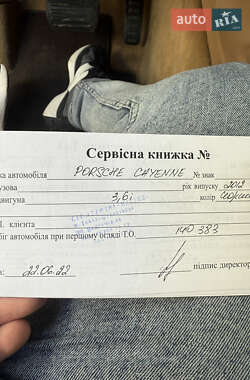 AUTO
RIA
.com
Сервісна книжка №
ка автомобіля PORSCHE CAYENNE № знак
узова рік випуску 2012
вигуна 3,6 колір
І. клієнта
біг автомобіля при першому огляді Т.О. 140 383
а: 22.06.22 підпис директор